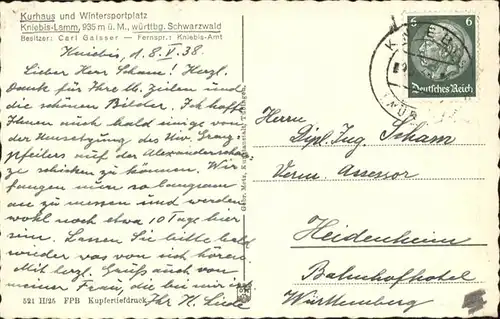 Kurhaus und Wintersportplatz
Kniebis-Lamm, 935 m ü. M., württbg. Schwarzwald
Besitzer: Carl Gaisser — Fernspr.: Kniebis-Amt
Kniebis, 18.V.38.
Lieber Herr Scham! Herzl.
Dank für Ihre lb. Zeilen und
die schönen Bilder. Ich hoffe
Ihnen auch bald einige von
der Umsetzung des Niv. Grenz-
pfeilers auf der Alexanderschanze
zu schicken zu können. Wir
fangen nun so langsam
an zu messen und werden
wohl noch etwa 10 Tage hier
sein. Lassen Sie bitte bald
wieder was von sich hören.
Mit herzl. Gruß auch von
meiner Frau, die bei mir ist
Ihr
521 H/25 FPB Kupfertiefdruck
Gebr. Metz, Kunstanstalt, Tübingen
6 6
Deutsches Reich
Herrn
Dipl. Ing. Scham
Verm. Assessor
Heidenheim
Bahnhofhotel
Württemberg